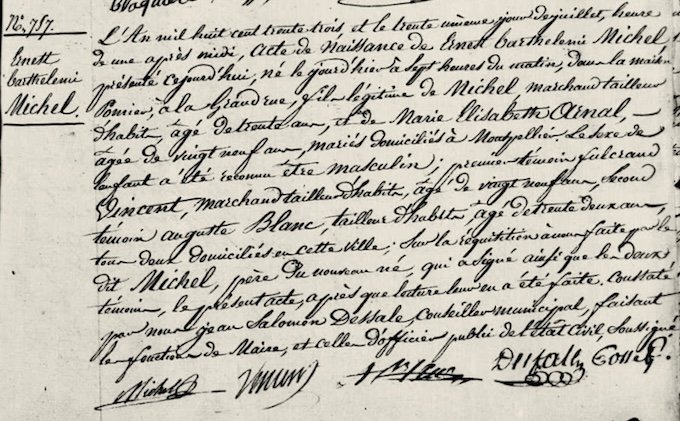 N.º 757.
Ernest
barthelemi
Michel
L'An mil huit cent trente trois, et le trente unieme jour de juillet, heure
de une après midi, Acte de Naissance de Ernest barthelemi Michel
présenté cejourd'hui, né le jour d'hier à sept heures du matin, dans la maison
Pomier, à la Grand rue, fils légitime de Michel marchand tailleur
d'habit, âgé de trente ans, et de Marie Elisabeth Arnal, —
âgée de vingt neuf ans, mariés domiciliés à Montpellier. Le sexe de
l'enfant a été reconnu être masculin; premier témoin fulcrand
Vincent, marchand tailleur d'habits, âgé de vingt neuf ans, Second
témoin auguste Blanc, tailleur d'habits âgé de trente deux ans,
tous deux domiciliés en cette ville; Sur la réquisition à nous faite par le
dit Michel, père du nouveau né, qui a signé ainsi que les deux
témoins, le présent acte, après que lecture leur en a été faite. Constaté
par nous jean Salomon Dessale Conseiller municipal, faisant
les fonctions de Maire, et celles d'officier public de l'état Civil, Soussigné
Michel Vincent